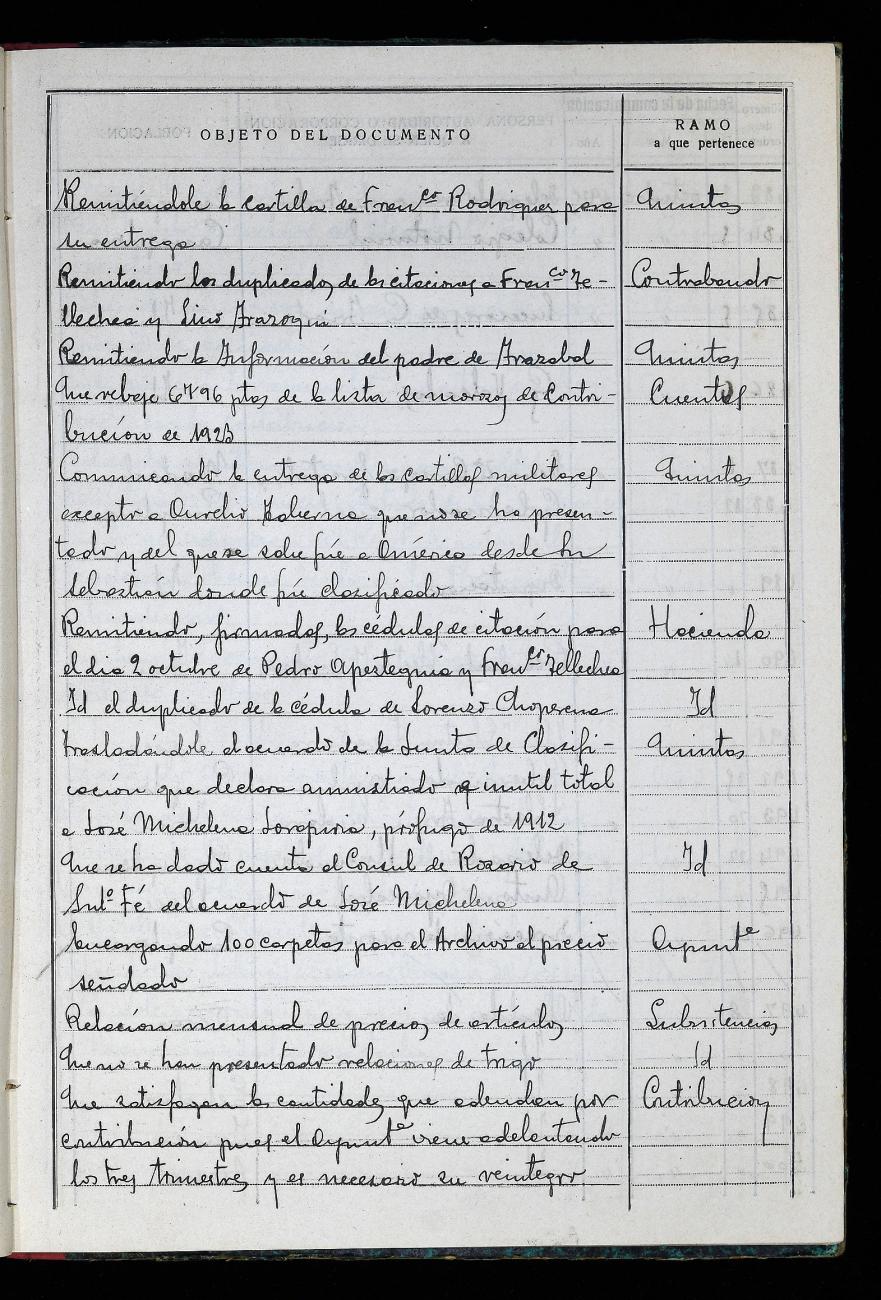 OBJETO DEL DOCUMENTO
RAMO
a que pertenece
Remitiéndole la cartilla de Franco Rodriguez para Quintas
su entrega
Remitiendo los duplicados de las citaciones a Franco Te- Contrabando
llechea y Lino Irazoqui
Remitiendo la Información del padre de Irazabal Quintas
Que rebaje 67'96 ptas de la lista de morosos de Contri- Cuentas
bución de 1923
Comunicando la entrega de las cartillas militares Quintas
excepto a Aurelio Taberna que no se ha presen-
tado y del que se sabe fué a América desde Sn
Sebastián donde fué clasificado
Remitiendo, firmadas, las cédulas de citación para Hacienda
el dia 2 octubre de Pedro Apesteguia y Franco Tellechea
Id el duplicado de la cédula de Lorenzo Choperena Id
Trasladándole el acuerdo de la Junta de Clasifi- Quintas
cación que declara amnistiado inutil total
a José Michelena, prófugo de 1912
Que se ha dado cuenta al Consul de Rosario de Id
Fé del acuerdo de José Michelena
Encargando 100 carpetas para el Archivo al precio Ayunte
señalado
Relación mensual de precios de artículos Subsistencias
Que no se han presentado relaciones de trigo Id
Que satisfagan las cantidades que adeudan por Contribucion
contribución pues el Ayunte viene adelantando
los tres trimestres y es necesario su reintegro